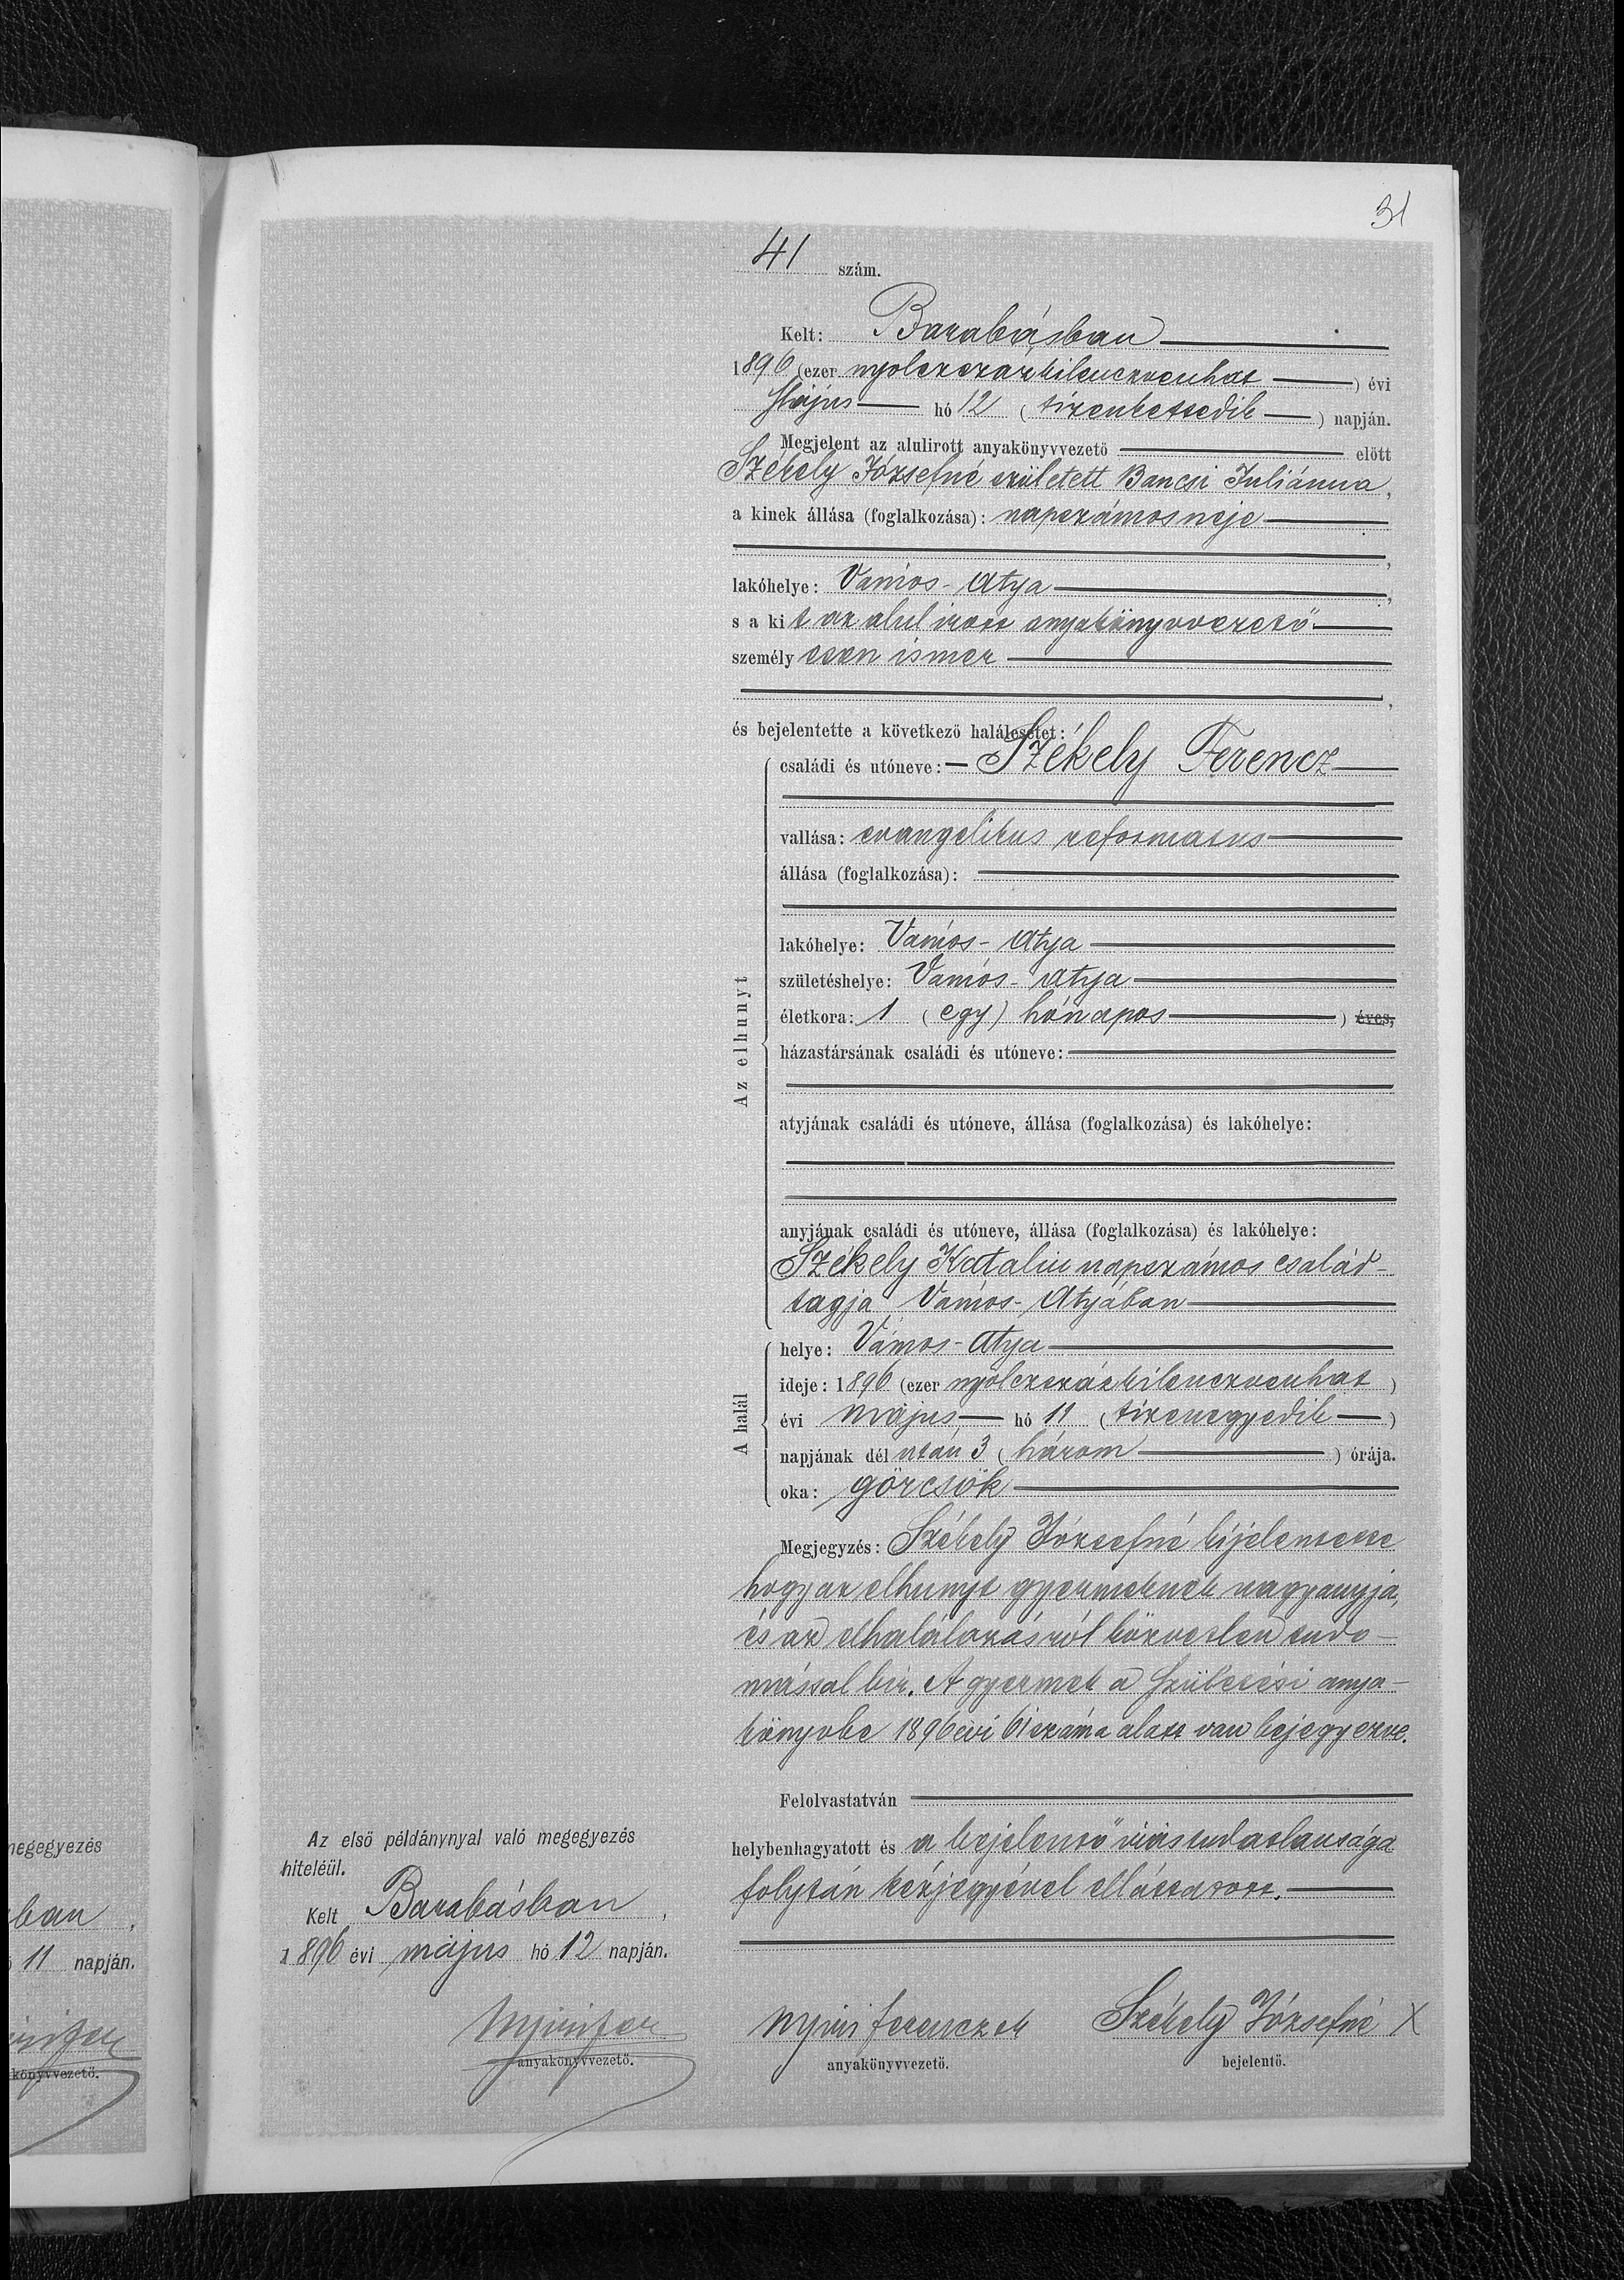 31
41 szám.
Kelt: Barabásban
1896 (ezer nyolczszázkilenczvenhat) évi
Május hó 12 (tizenkettedik) napján.
Megjelent az alulirott anyakönyvvezető előtt
Székely Józsefné született Bancsi Juliánna,
a kinek állása (foglalkozása): napszámos neje
,
lakóhelye: Vámos-Atya,
s a kit az alulirott anyakönyvvezető
személyesen ismer
,
és bejelentette a következő halálesetet:
Az elhunyt
családi és utóneve: Székely Ferencz
vallása: evangelikus reformatus
állása (foglalkozása):
lakóhelye: Vámos-Atya
születéshelye: Vámos-Atya
életkora: 1 (egy) hónapos ) éves,
házastársának családi és utóneve:
atyjának családi és utóneve, állása (foglalkozása) és lakóhelye:
anyjának családi és utóneve, állása (foglalkozása) és lakóhelye:
Székely Katalin napszámos család-
tagja Vámos-Atyában
A halál
helye: Vámos-Atya
ideje: 1896 (ezer nyolczszázkilenczvenhat)
évi május hó 11 (tizenegyedik)
napjának dél után 3 (három) órája.
oka: görcsök
Megjegyzés: Székely Józsefné kijelentette
hogy az elhunyt gyermeknek nagyanyja,
és az elhalálozásról közvetlen tudo-
mással bir. A gyermek a születési anya-
könyvbe 1896 évi 61 száma alatt van bejegyezve.
Felolvastatván
helybenhagyatott és a bejelentő irástudatlansága
folytán kézjegyével elláttatott.
Nyiri Ferenczek
anyakönyvvezető.
Székely Józsefné X
bejelentő.
Az első példánynyal való megegyezés
hiteléül.
Kelt Barabásban,
1896 évi május hó 12 napján.
anyakönyvvezető.
megegyezés
ban,
11 napján.
könyvvezető.